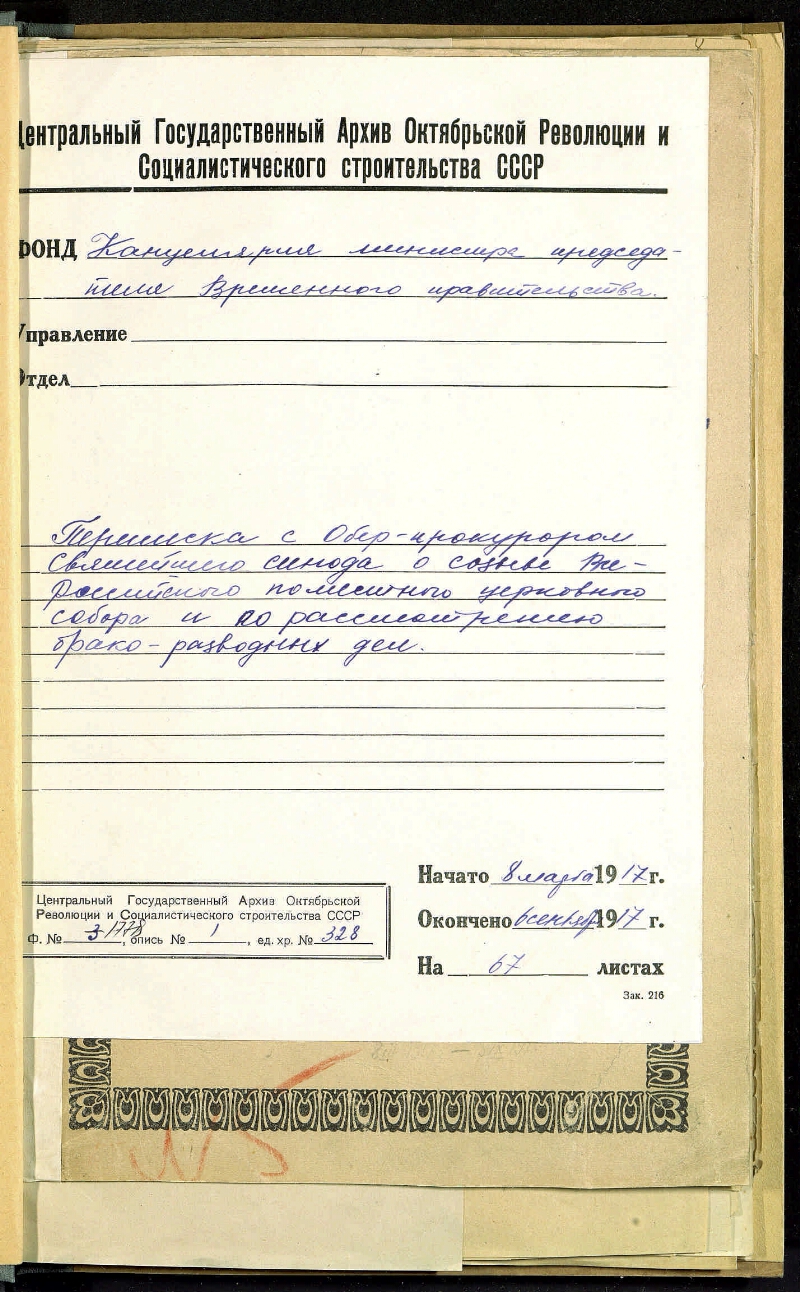 Центральный Государственный Архив Октябрьской Революции и
Социалистического строительства СССР
ФОНД Канцелярия министра председа-
теля Временного правительства.
Управление
Отдел
Переписка с Обер-прокурором
Святейшего синода о созыве Все-
российского поместного церковного
собора и по рассмотрению
брако-разводных дел.
Начато 8 марта 1917 г.
Центральный Государственный Архив Октябрьской
Революции и Социалистического строительства СССР
Ф. № 3 1778, опись № 1, ед. хр. № 328
Окончено 6 сентябр 1917 г.
На 67 листах
Зак. 216
№ 5